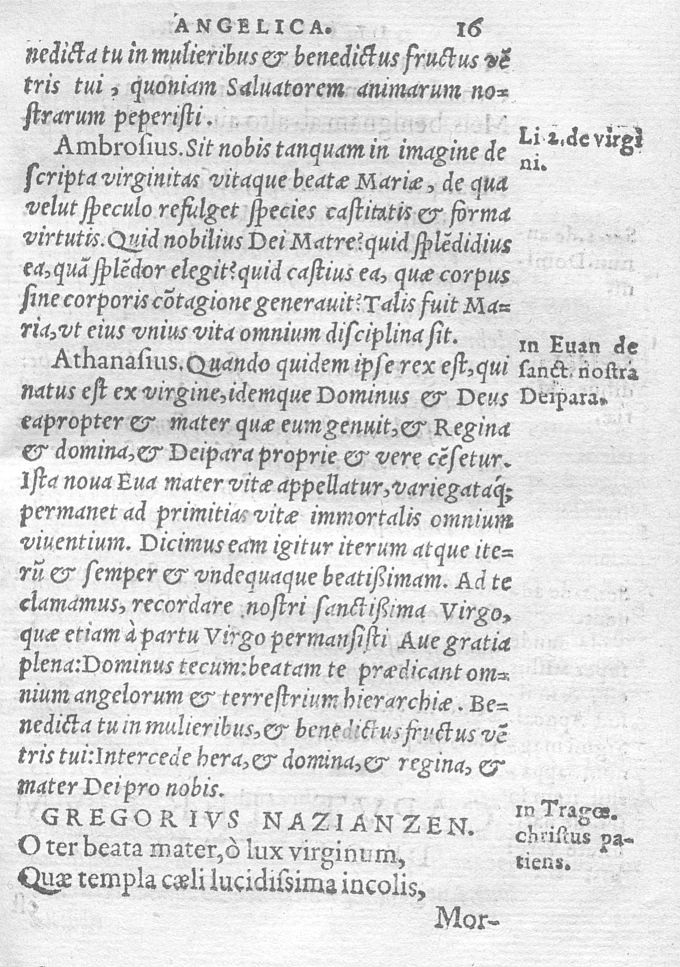 ANGELICA. 16
nedicta tu in mulieribus & benedictus fructus vẽ
tris tui, quoniam Saluatorem animarum no=
ſtrarum peperiſti.
Ambroſius. Sit nobis tanquam in imagine de
ſcripta virginitas vitaque beatæ Mariæ, de qua
velut ſpeculo refulget ſpecies caſtitatis & forma
virtutis. Quid nobilius Dei Matre? quid ſplẽdidius
ea, quã ſplẽdor elegit? quid caſtius ea, quæ corpus
ſine corporis cõtagione generauit? Talis fuit Ma=
ria, vt eius vnius vita omnium diſciplina ſit.
Li 2. de virgi
ni.
Athanaſius. Quando quidem ipſe rex eſt, qui
natus eſt ex virgine, idemque Dominus & Deus
eapropter & mater quæ eum genuit, & Regina
& domina, & Deipara proprie & vere cẽſetur.
Iſta noua Eua mater vitæ appellatur, variegataq́;
permanet ad primitias vitæ immortalis omnium
viuentium. Dicimus eam igitur iterum atque ite=
rũ & ſemper & vndequaque beatißimam. Ad te
clamamus, recordare noſtri ſanctißima Virgo,
quæ etiam à partu Virgo permanſiſti Aue gratia
plena: Dominus tecum: beatam te prædicant om=
nium angelorum & terreſtrium hierarchiæ. Be=
nedicta tu in mulieribus, & benedictus fructus vẽ
tris tui: Intercede hera, & domina, & regina, &
mater Dei pro nobis.
in Euan de
ſanct. noſtra
Deipara.
GREGORIVS NAZIANZEN.
O ter beata mater, ò lux virginum,
Quæ templa cæli lucidiſsima incolis,
in Tragœ.
chriſtus pa-
tiens.
Mor-